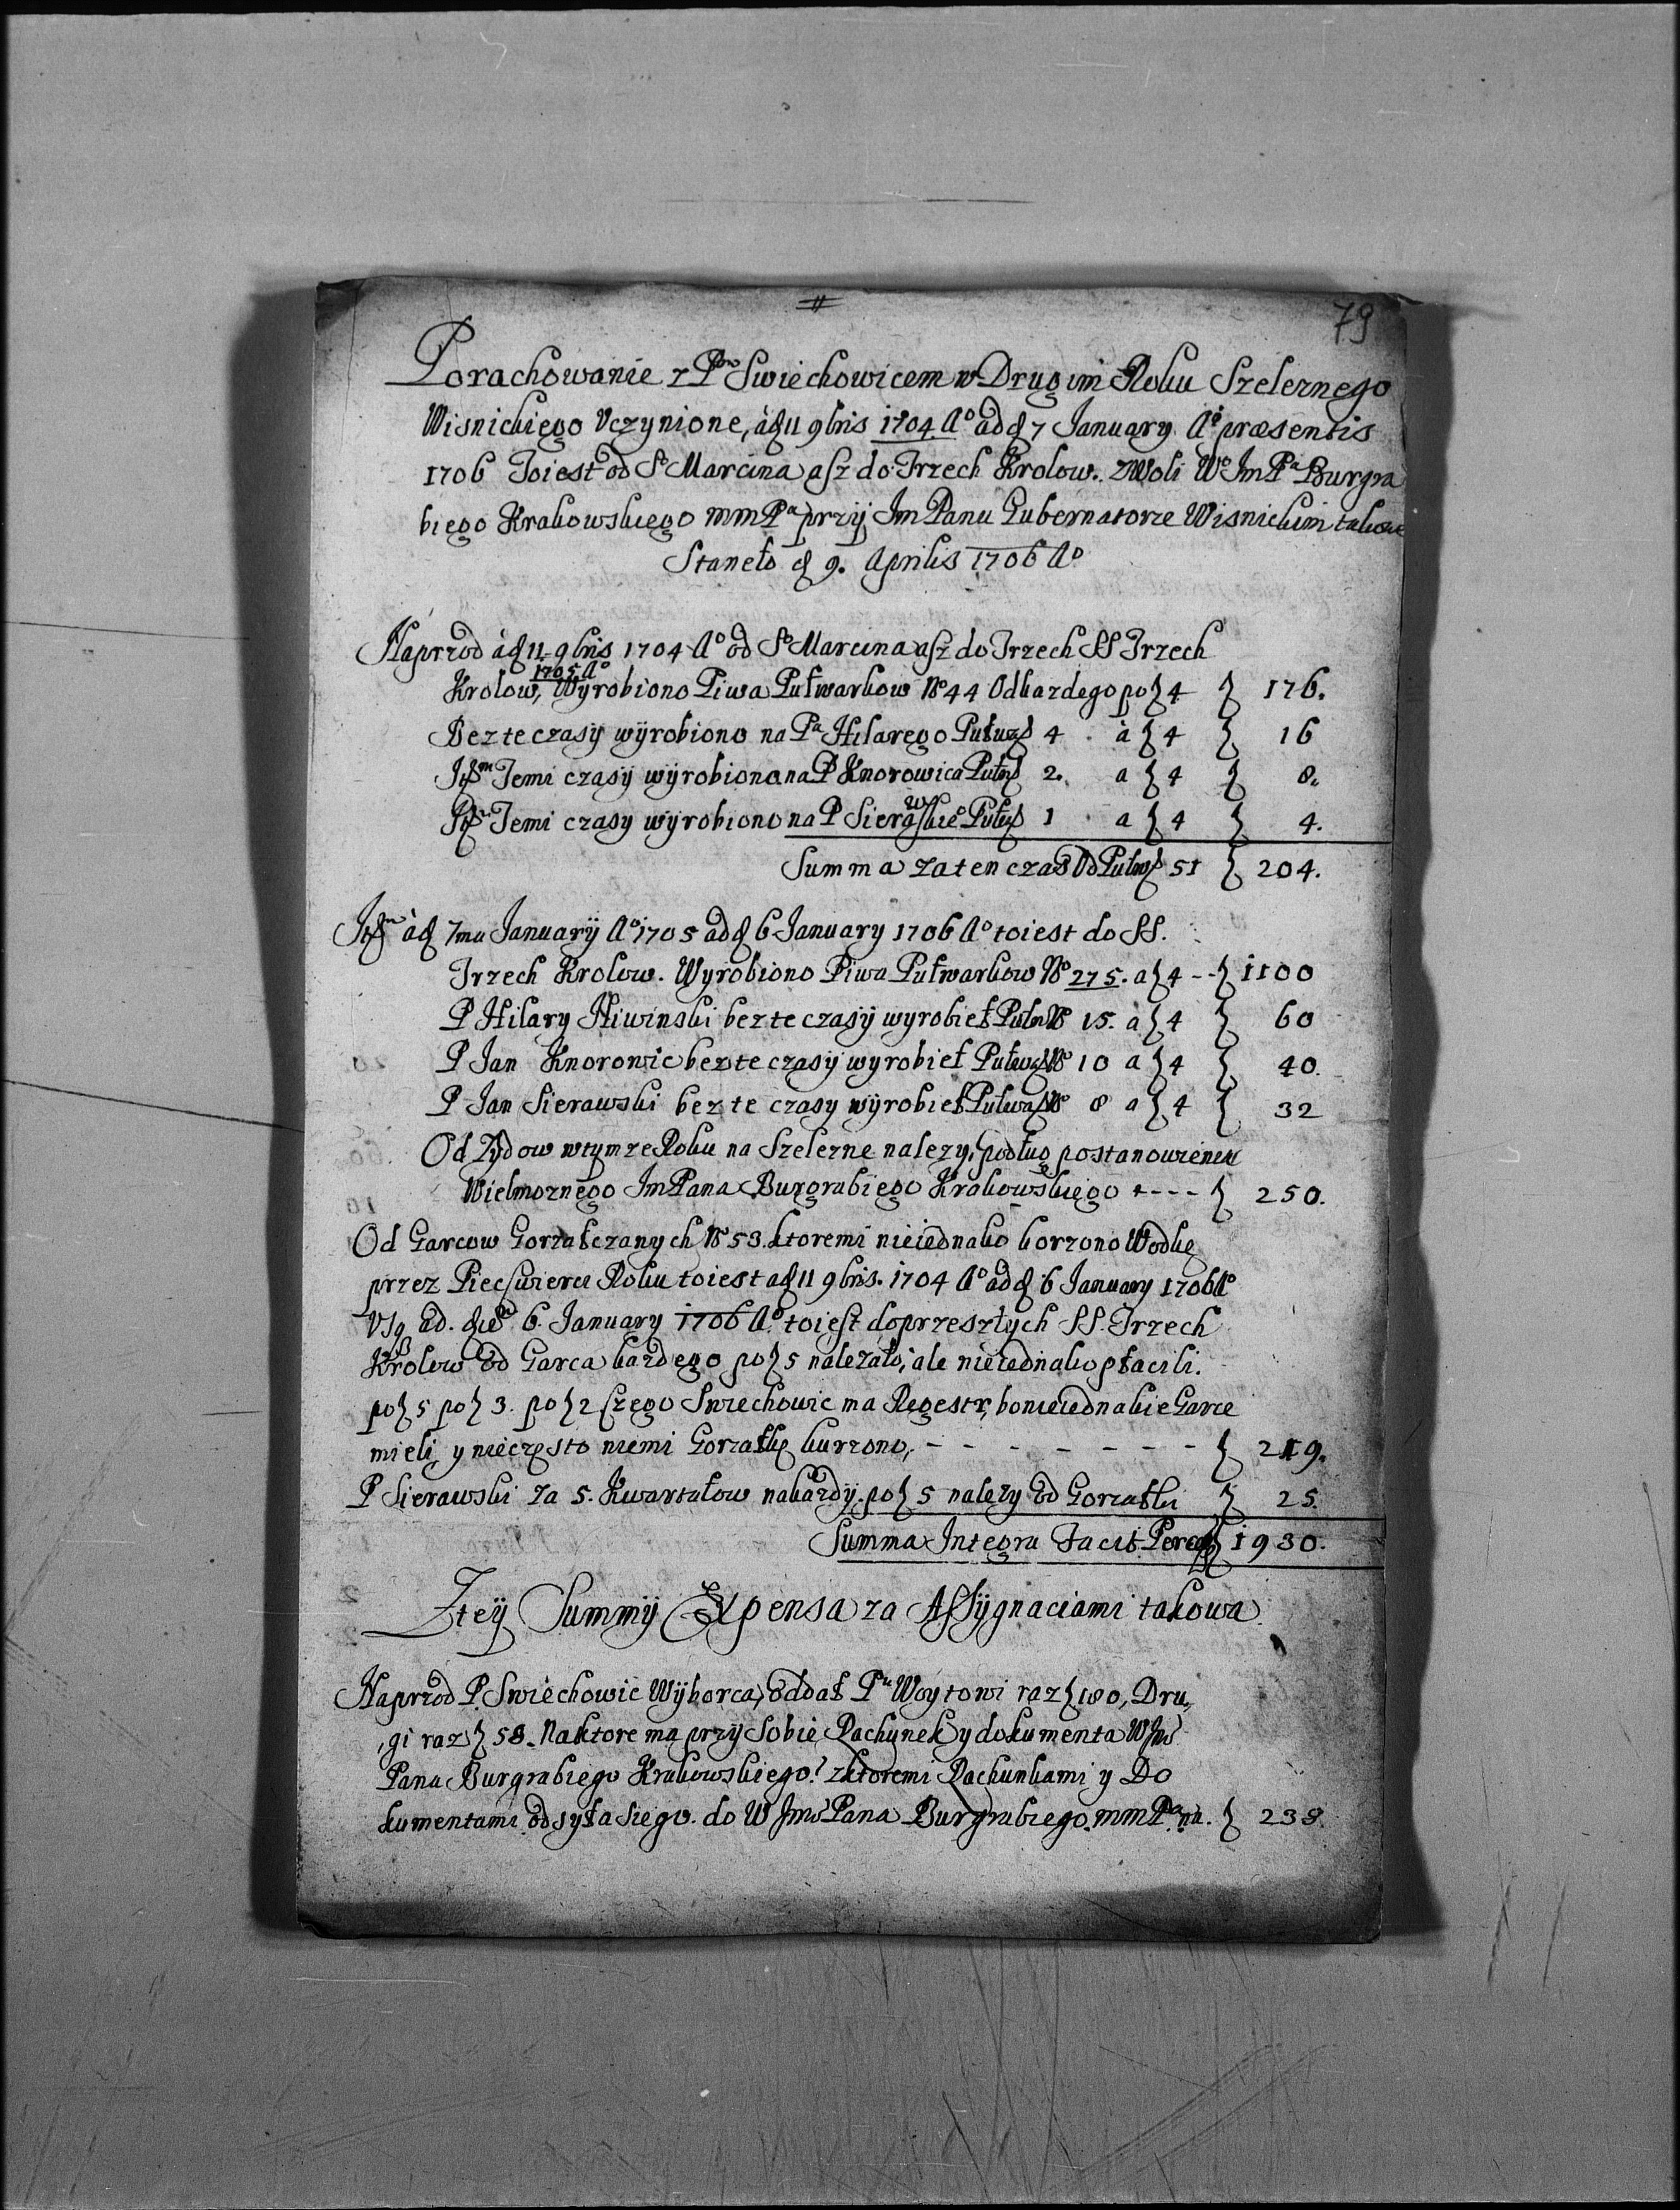 79
Porachowanie z Pᵉᵐ Swiechowicem w Drugim Roku Szeleznego
Wisnickiego Uczynione, à d 11 9bris 1704. Aº ad d 7 January Aº præsentis
1706 Toiest od Sº Marcina asz do Trzech Krolow. z Woli Wº Im Pª Burgra
biego Krakowskiego mm Pª przÿ Im Panu Gubernatorze Wisnickim takow
Staneło d 9. Aprilis 1706 Aº
Naprzod à d 11 9bris 1704 Aº od Sº Marcina asz do Trzech SS Trzech
1705 Aº
Krolow, Wyrobiono Piwa Pułwarkow Nº 44 Od kazdego po } 4 } 176.
Bez te czasÿ wÿrobiono na Pª Hilarego Pułwar 4 . à } 4 } 16
Itᵐ Temi czasÿ wÿrobiono na P Knorowica Pułw 2. a } 4 } 8.
Itᵐ Temi czasy wÿrobiono na P Sierawskiº Pułw 1 . a } 4 } 4.
Summa za ten czas Od Pułw 51 } 204.
Itᵐ à d 7ma Januarÿ Aº 1705 ad d 6 January 1706 Aº toiest do SS.
Trzech Krolow. Wyrobiono Piwa Pułwarkow Nº 275. a } 4 -- } 1100
P Hilary Niwinski bez te czasÿ wyrobieł Pułw Nº 15. à } 4 } 60
P Jan Knorowic bez te czasÿ wyrobieł Pułwa Nº 10 a } 4 } 40.
P Jan Sierawski bez te czasy wÿrobieł Pułwa Nº 8 a } 4 } 32
Od Zÿdow w tym ze Roku na Szelezne nalezy, podług postanowienia
Wielmoznego Im Pana Burgrabiego Krakowskiego ---- } 250.
Od Garcow Gorzałczanych Nº 53. ktoremi nieiednako korzono Wodkę
przez Piec swierci Roku toiest a d 11 9bris. 1704 Aº ad d 6 January 1706 Aº
Vsq ad. diem 6. January 1706 Aº toiest do przeszłych SS. Trzech
Krolow Od Garca kazdego po } 5 nalezało, ale nieiednako płacili.
po } 5 po } 3. po } 2 szego Swiechowic ma Regestr, bo nieiednakie Garce
mieli y nieczęsto niemi Gorzałkę kurzono, - - - - - - - } 219.
P Sierawski za 5. Kwartałow na kazdÿ. po } 5 nalezy Od Gorzałki } 25.
Summa Integra Facit Percept } 1930.
Z teÿ Summÿ Expensa za Assÿgnaciami takowa.
Naprzod P. Swiechowic Wÿborca, oddał Pᵘ Woytowi raz } 180, Dru,
,gi raz } 58. Na ktore ma przÿ Sobie Rachunek y dokumenta W Imº
Pana Burgrabiego Krakowskiego. z ktoremi Rachunkami y Do
kumentami odsyła sie go. do W Jmº Pana Burgrabiego. mm Pªna. } 238.